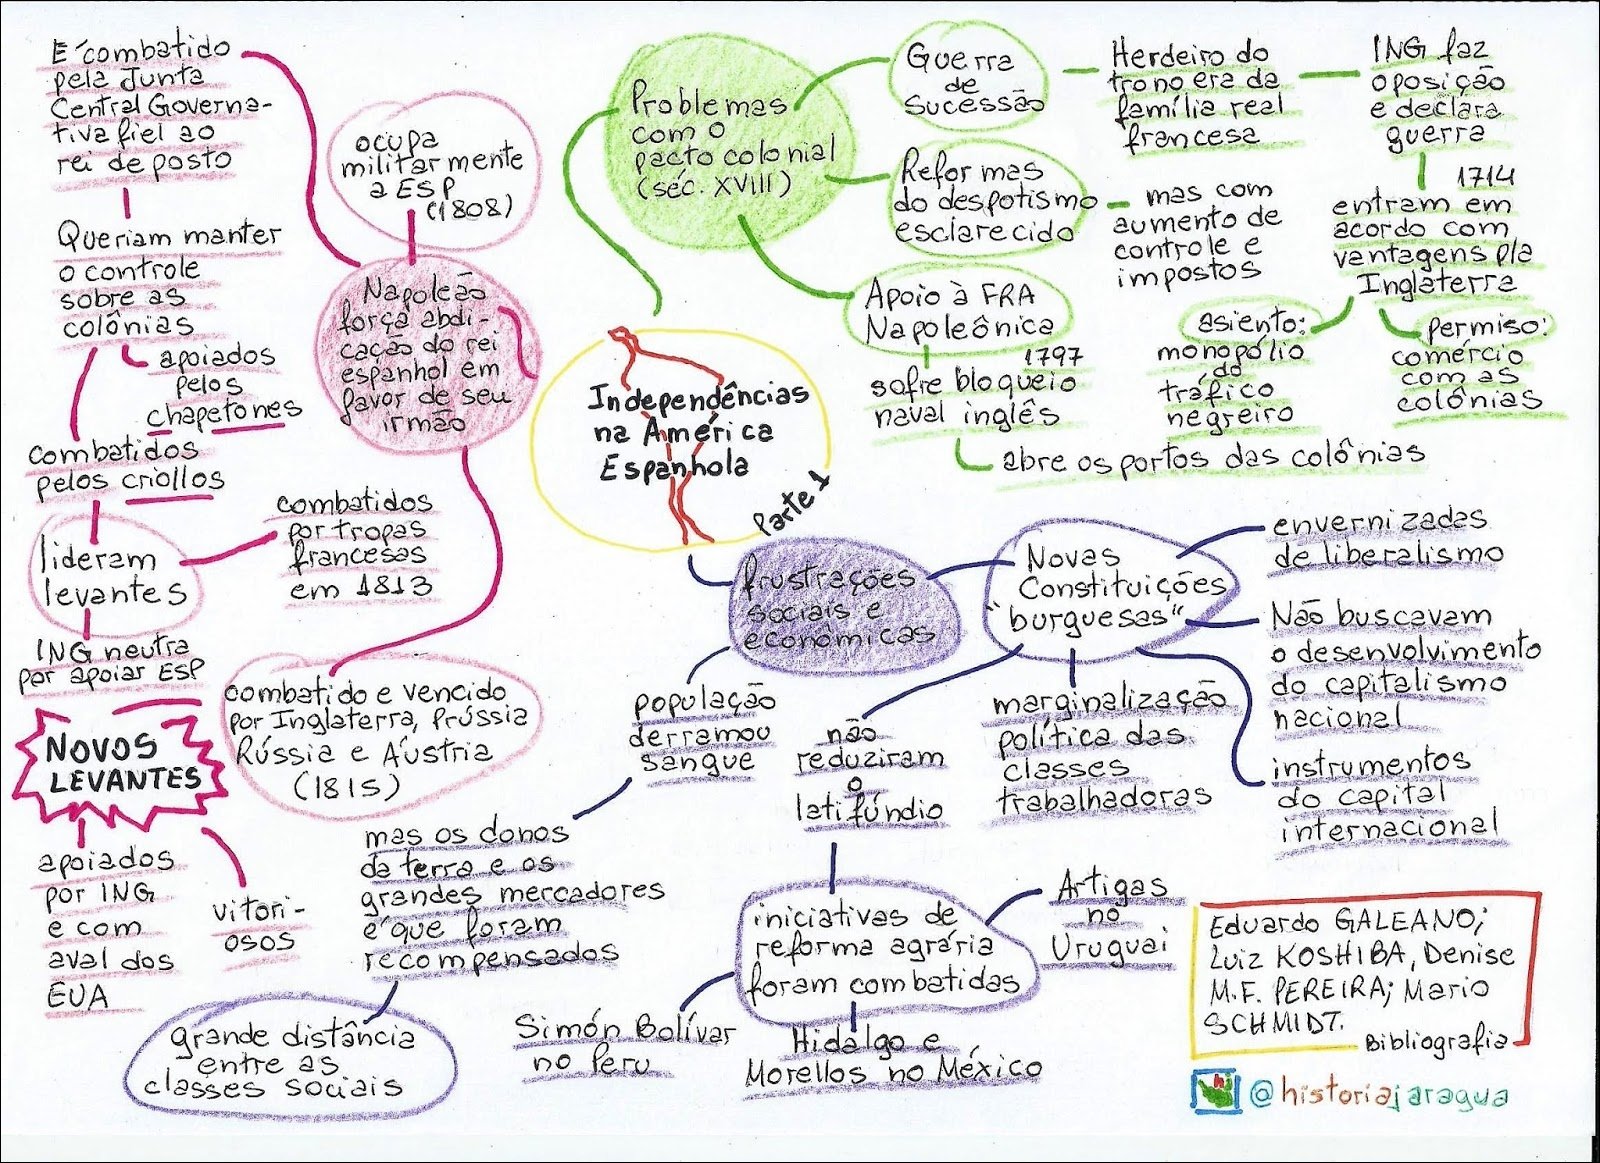 Independências
na América
Espanhola
Parte 1
Problemas
com o
pacto colonial
(séc. XVIII)
Guerra
de
Sucessão
Herdeiro do
trono era da
família real
francesa
ING faz
oposição
e declara
guerra
1714
entram em
acordo com
vantagens p/a
Inglaterra
asiento:
monopólio
do
tráfico
negreiro
permiso:
comércio
com as
colônias
Reformas
do despotismo
esclarecido
mas com
aumento de
controle e
impostos
Apoio à FRA
Napoleônica
1797
sofre bloqueio
naval inglês
abre os portos das colônias
frustrações
sociais e
econômicas
Novas
Constituições
"burguesas"
envernizadas
de liberalismo
Não buscavam
o desenvolvimento
do capitalismo
nacional
instrumentos
do capital
internacional
marginalização
política das
classes
trabalhadoras
não
reduziram
o
latifúndio
iniciativas de
reforma agrária
foram combatidas
Artigas
no
Uruguai
Hidalgo e
Morellos no México
Simón Bolívar
no Peru
população
derramou
sangue
mas os donos
da terra e os
grandes mercadores
é que foram
recompensados
grande distância
entre as
classes sociais
Napoleão
força abdi-
cação do rei
espanhol em
favor de seu
irmão
ocupa
militarmente
a ESP
(1808)
É combatido
pela Junta
Central Governa-
tiva fiel ao
rei deposto
Queriam manter
o controle
sobre as
colônias
apoiados
pelos
chapetones
combatidos
pelos criollos
lideram
levantes
combatidos
por tropas
francesas
em 1813
ING neutra
por apoiar ESP
combatido e vencido
por Inglaterra, Prússia
Rússia e Áustria
(1815)
NOVOS
LEVANTES
apoiados
por ING
e com
aval dos
EUA
vitori-
osos
Eduardo GALEANO;
Luiz KOSHIBA, Denise
M.F. PEREIRA; Mario
SCHMIDT.
Bibliografia
hj
@historiajaragua